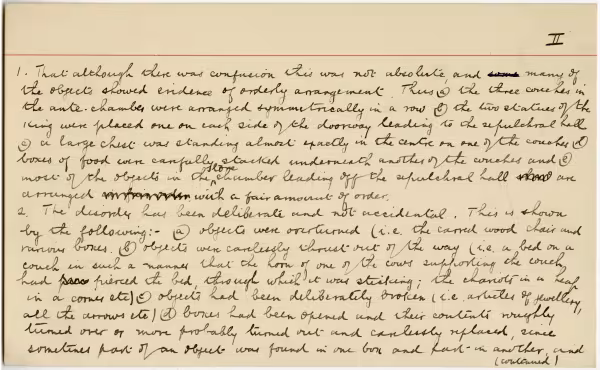 II
1. That although there was confusion this was not absolute, and some many of
the objects showed evidence of orderly arrangement. Thus (a) the three couches in
the ante-chamber were arranged symmetrically in a row (b) the two statues of the
King were placed one on each side of the doorway leading to the sepulchral hall
(c) a large chest was standing almost exactly in the centre on one of the couches (d)
boxes of food were carefully stacked underneath another of the couches and (e)
most of the objects in the store chamber leading off the sepulchral hall are
arranged with a fair amount of order.
2. The disorder has been deliberate and not accidental. This is shown
by the following:- (a) objects were overturned (i.e. the carved wood chair and
various boxes. (b) objects were carelessly thrust out of the way (i.e. a bed on a
couch in such a manner that the horn of one of the cows supporting the couch
had pierced the bed, through which it was sticking; the chariots in a heap
in a corner etc) (c) objects had been deliberately broken (i.e. articles of jewellery,
all the arrows etc) (d) boxes had been opened and their contents roughly
turned over or more probably turned out and carelessly replaced, since
sometimes part of an object was found in one box and part in another, and
(continued)